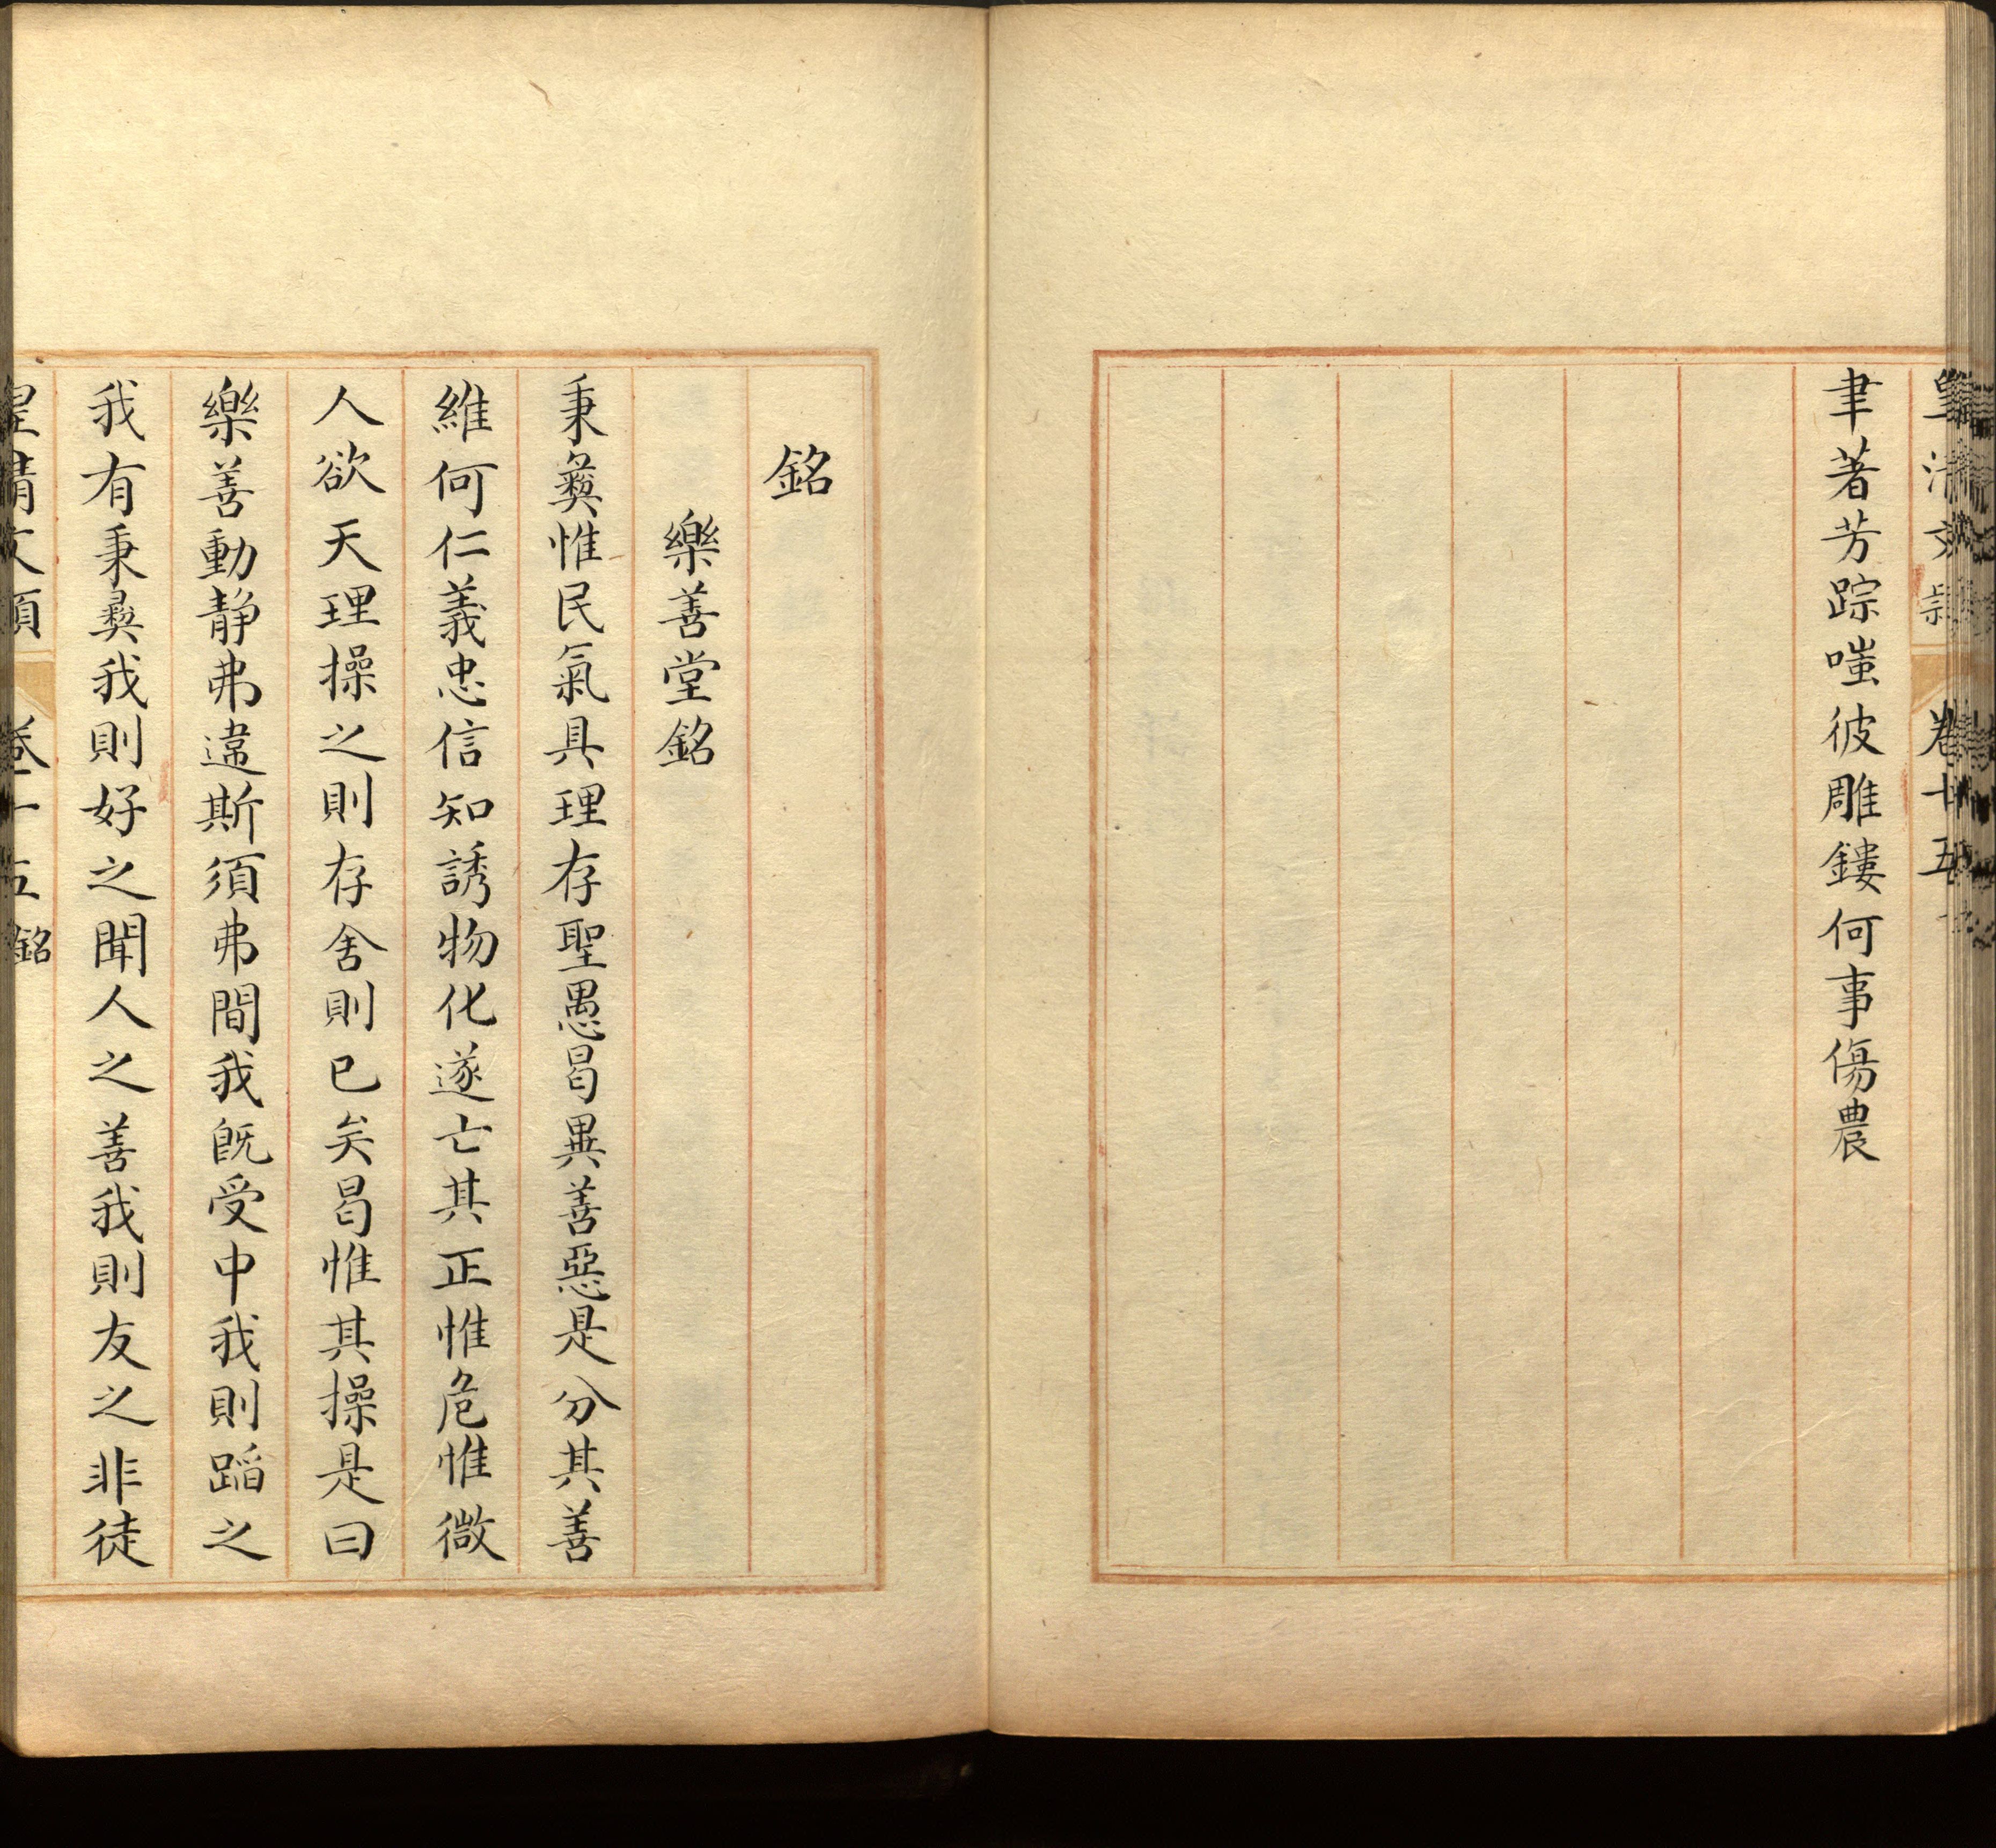 皇清文穎 卷十五
聿著芳踪嗤彼雕鏤何事傷農
銘
樂善堂銘
秉彝惟民氣具理存聖愚曷異善惡是分其善
維何仁義忠信知誘物化遂亡其正惟危惟微
人欲天理操之則存舍則已矣曷惟其操是曰
樂善動静弗違斯須弗間我既受中我則蹈之
我有秉彝我則好之聞人之善我則友之非徒
皇清文穎 卷十五 銘